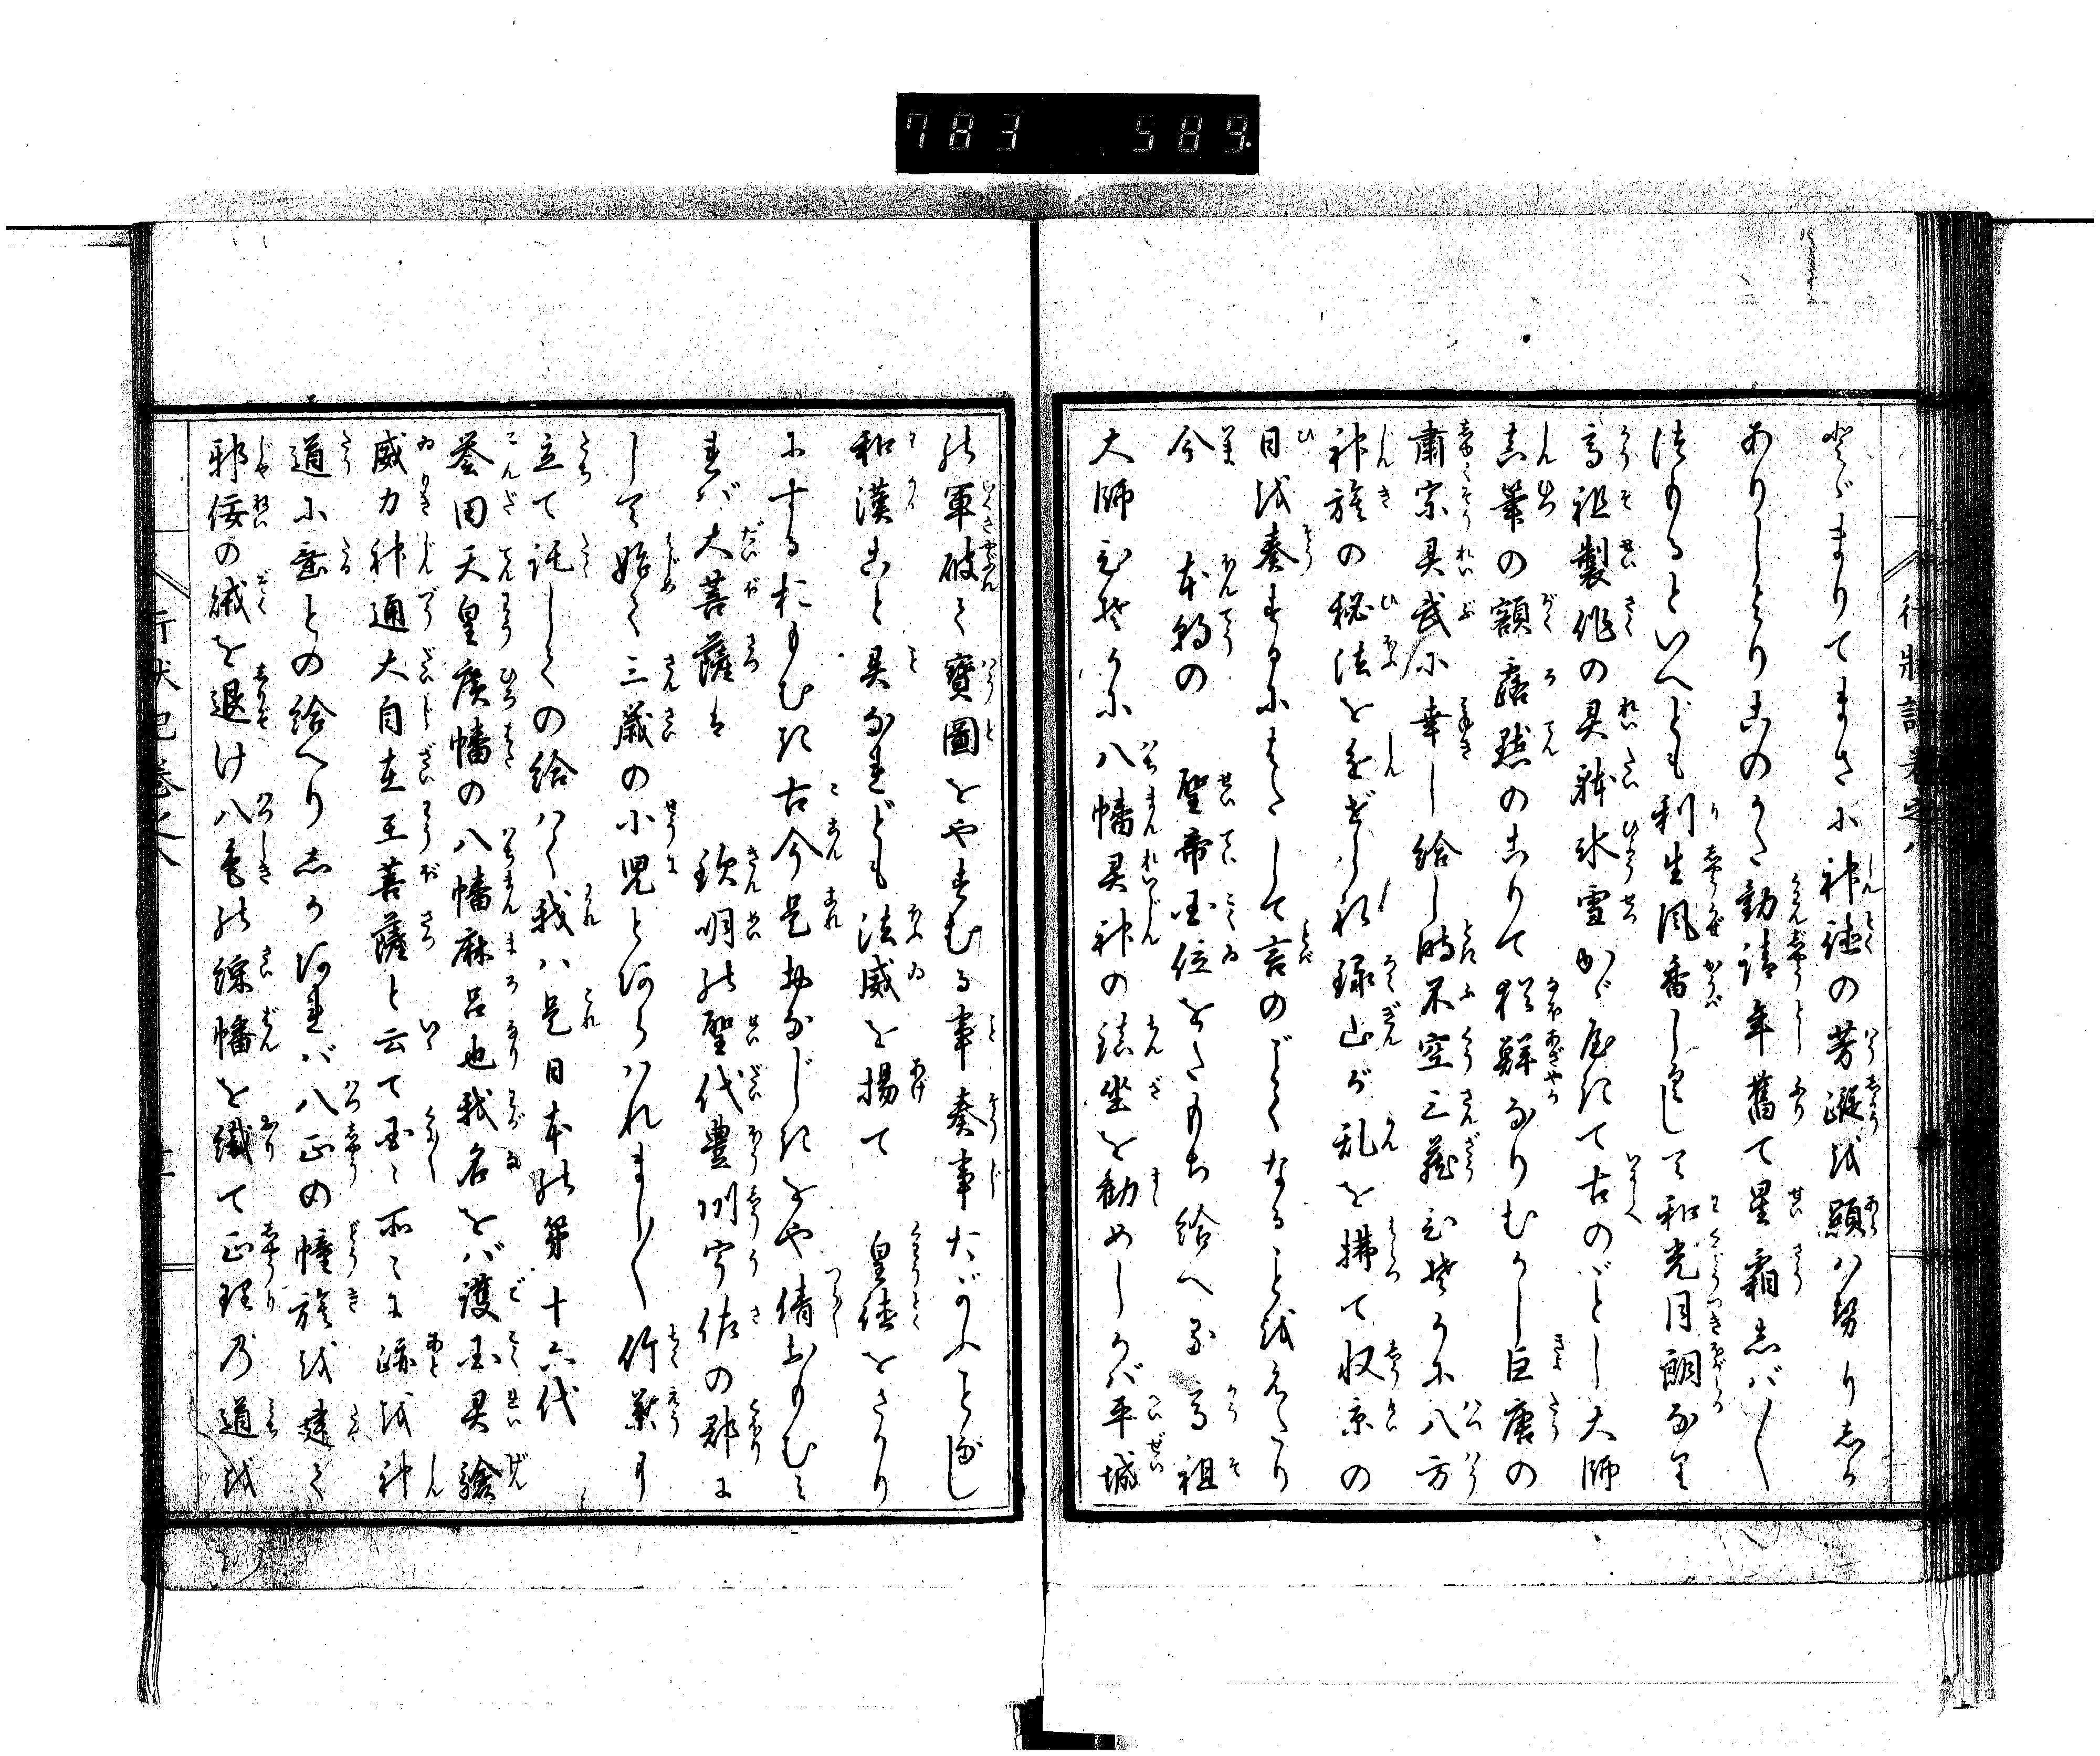 783 589.
とゞまりてまさに神徳の芳躅を顕ハ努りしか
ありしよりこのかた勧請年舊て星霜しバ〳〵
つもるといへども利生風香しくして和光月朗なり
高祖製作の具躰氷雪かゞ居きて古のごとし大師
真筆の額露點のこりて猶鮮なりむかし巨唐の
肅宗具武に幸し給し時不空三蔵ひそかに八方
神旗の秘法を 禄山が乱を拂て収京の
日を奏するにはたして言のごとくなることをえたり
今 本朝の 聖帝国位をたもち給へる高祖
大師ひそかに八幡具神の鎮坐を勧めしかバ平城
の軍破て寶圖をやすむる事奏事たがふことなし
和漢こと具なれども法威を揚て 皇徳をさかり
にするおもむき古今是おなじきをや倩おもむミ
れバ大菩薩は 欽明の聖代豊州宇佐の郡に
して始て三歳の小児とあらハれまし〳〵竹葉に
立て託しての給ハく我ハ是日本の第十六代
誉田天皇廣幡の八幡麻呂也我名をバ護国具験
威力神通大自在王菩薩と云て国〻所〻に跡を神
道に垂との給へりしかあれバ八正の幢旗を建て
邪佞の を退け八色の綵幡を織て正理の道を
行状記巻之八